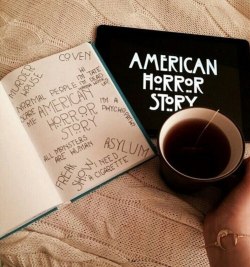 MURDER
HOUSE
COVEN
NORMAL PEOPLE
SCARE
ME
HI
I'M TATE
AMERICAN
HORROR
STORY
I'M A
ALL MONSTERS
ARE HUMAN
ASYLUM
FREAK
SHOW
I NEED
A CIGARETTE
AMERICAN
HORROR
STORY